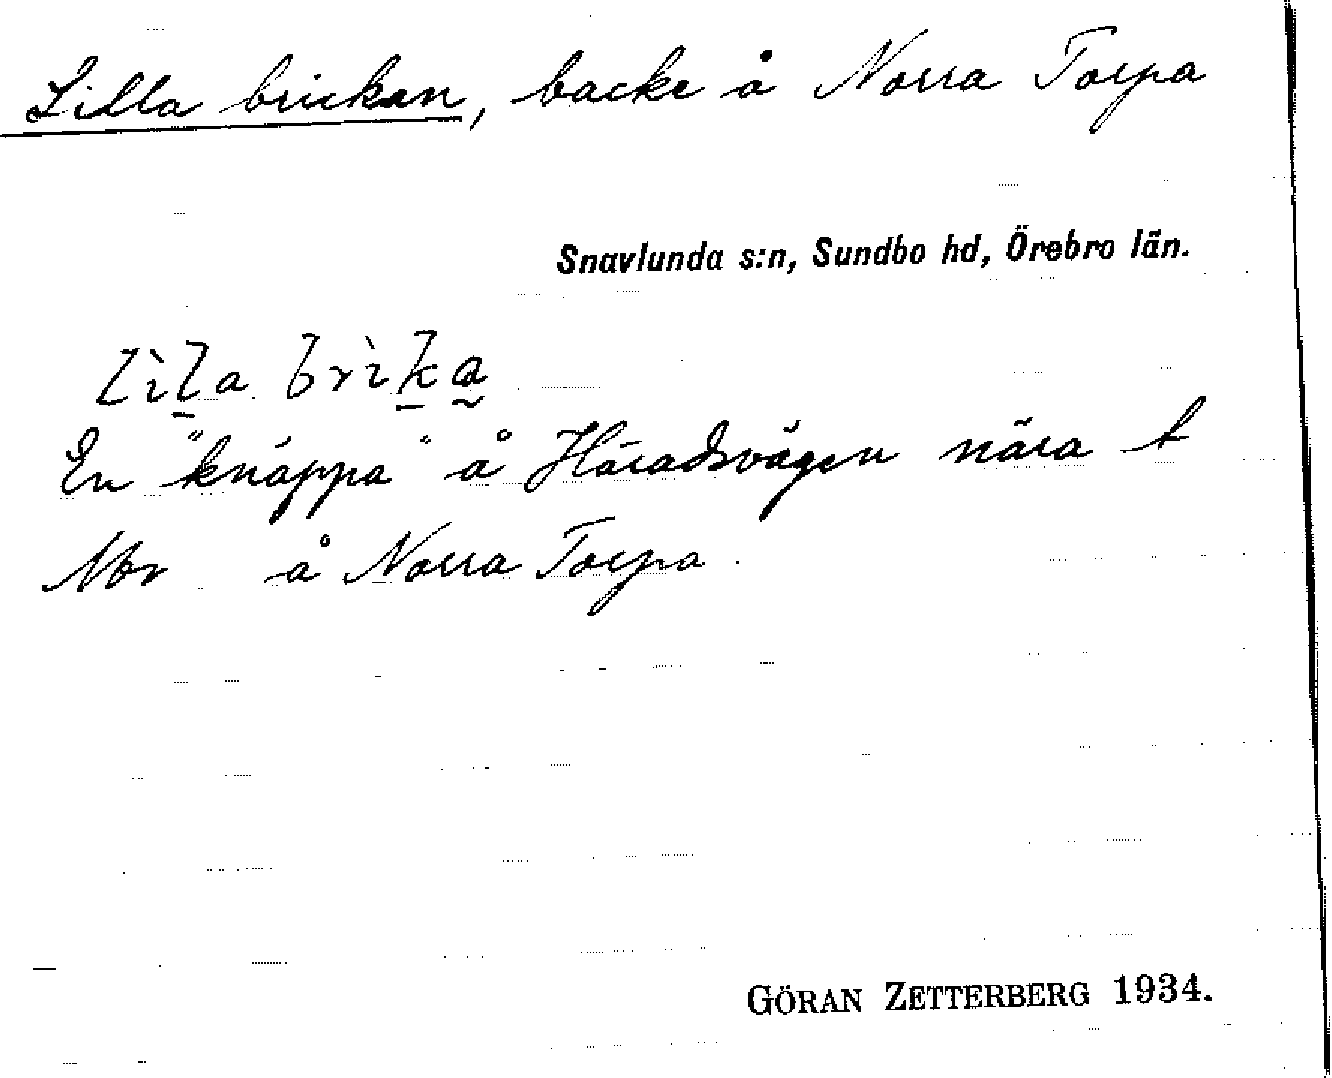 Lilla brickan, backe å Norra Torpa
Snavlunda s:n, Sundbo hd, Örebro län.
lìla brìka
En "knäppa" å Häradsvägen nära t
Mor å Norra Torpa.
GÖRAN ZETTERBERG 1934.